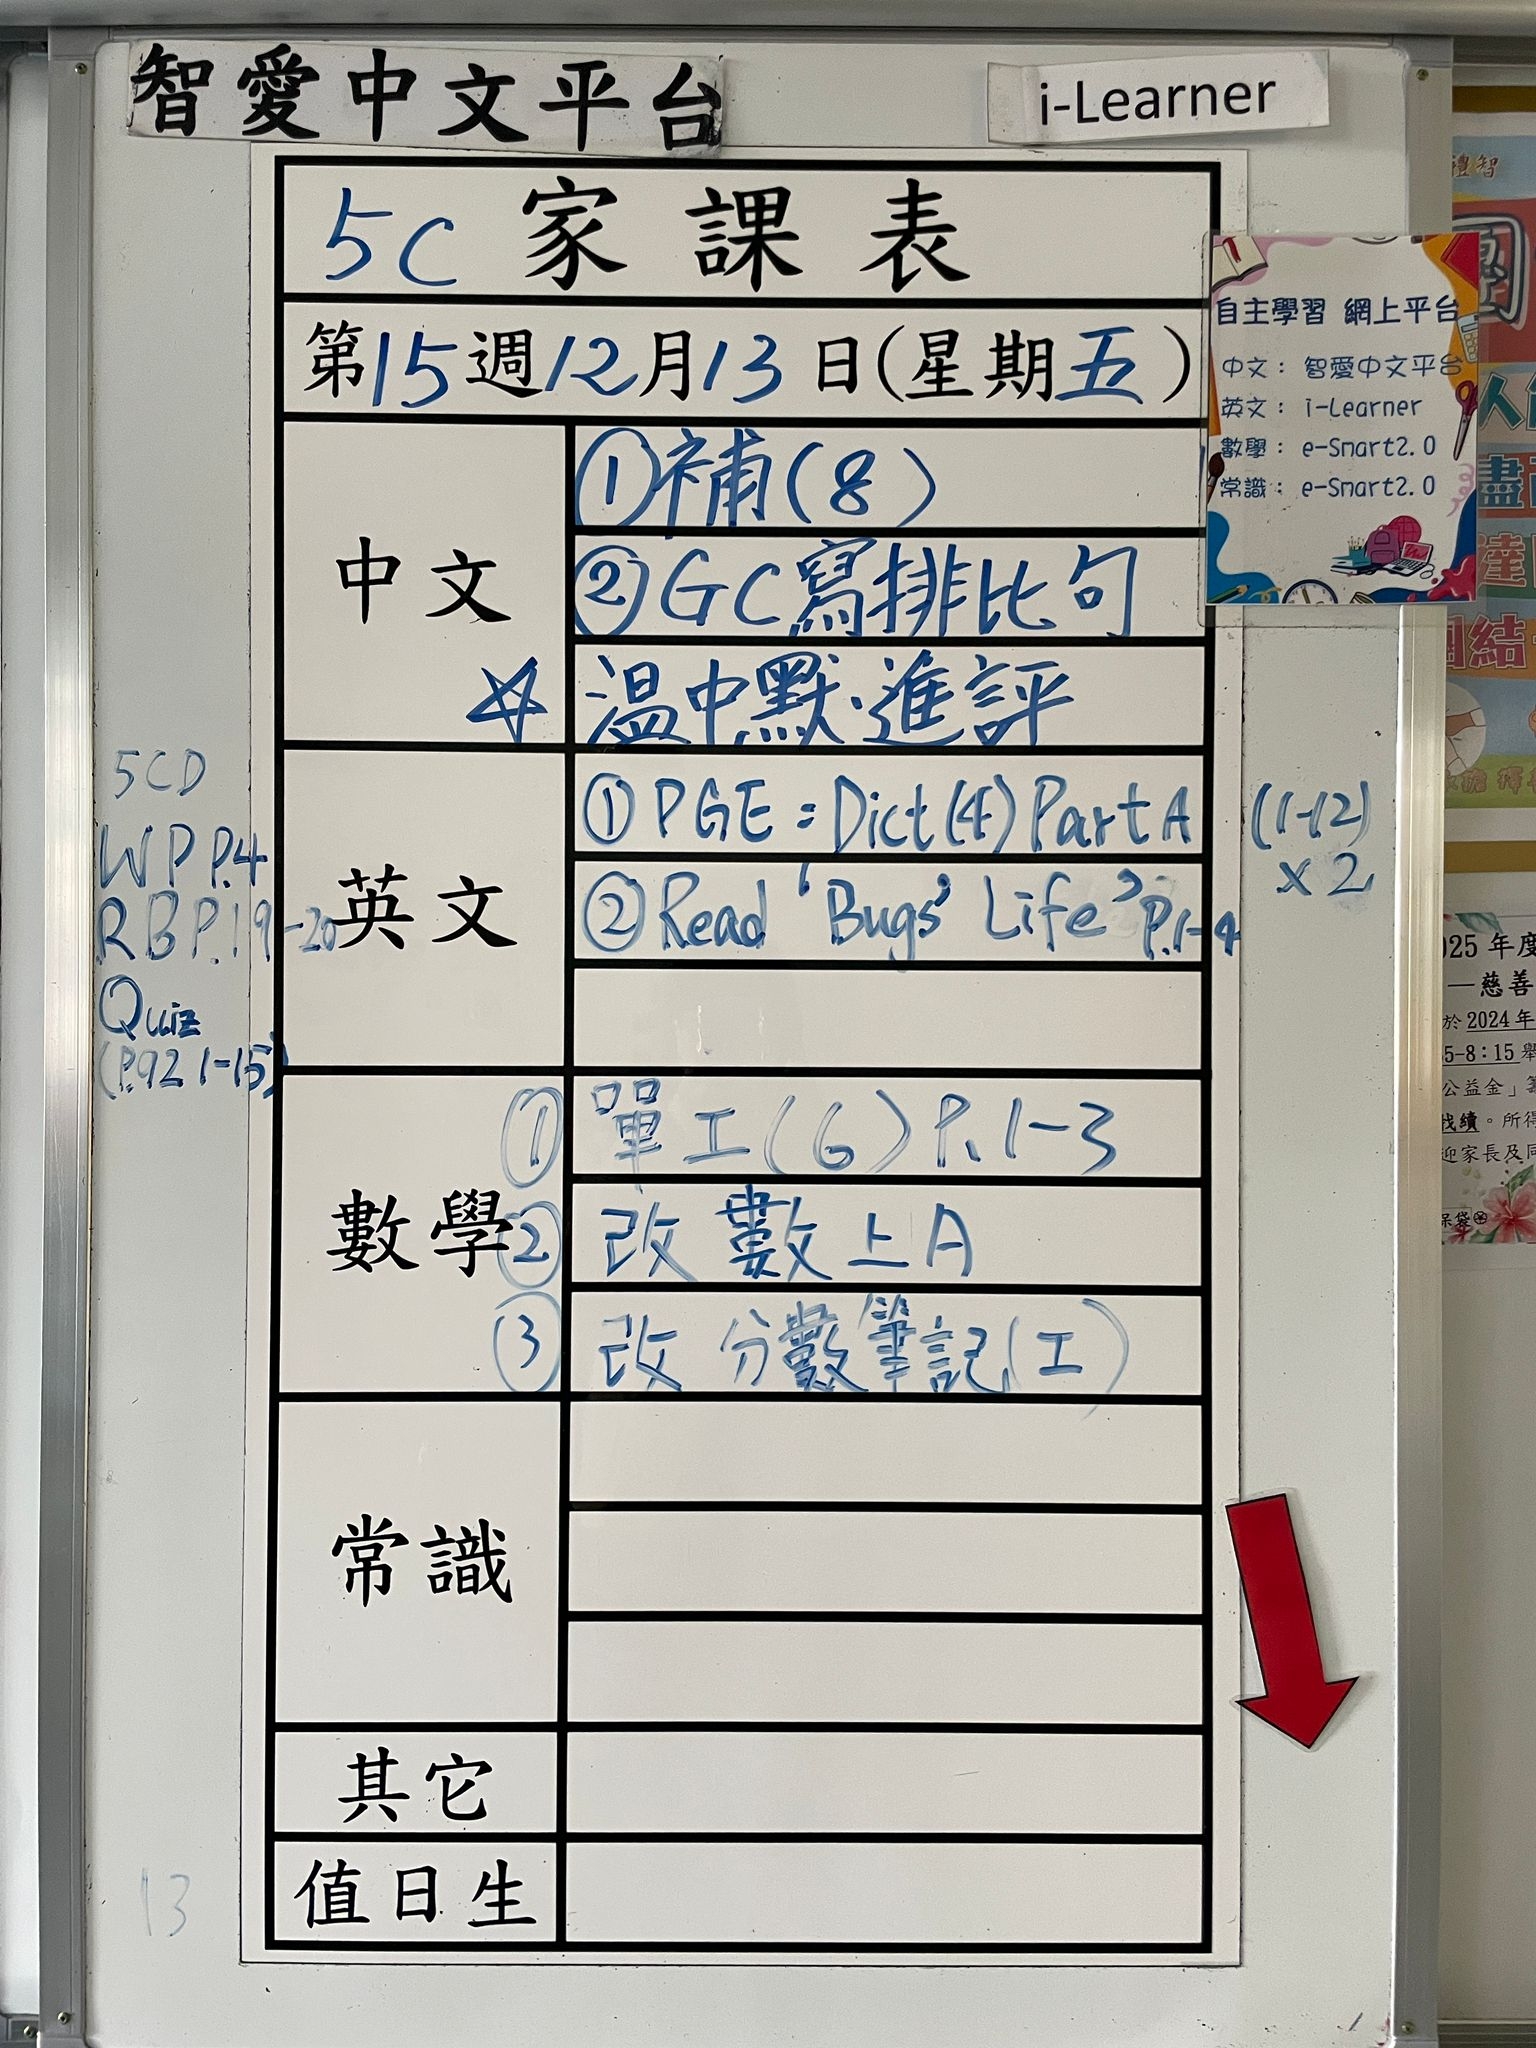 智愛中文平台
i-Learner
5C 家課表
第15週12月13日(星期五)
中文
①補(8)
②GC寫排比句
☆ 溫中默.進評
英文
①PGE:Dict(4)Part A (1-12)
x2
②Read 'Bugs' Life' P.1-4
5CD
WPP.4
RBP.19-20
Quiz
(P.92 1-15)
數學
① 單工(6)P.1-3
② 改數上A
③ 改分數筆記(工)
常識
其它
值日生
13
自主學習 網上平台
中文：智愛中文平台
英文：i-Learner
數學：e-Smart2.0
常識：e-Smart2.0
禮智
結
025 年度
—慈善
於 2024 年
5-8：15 舉
公益金」籌
找續。所得
迎家長及同
保袋